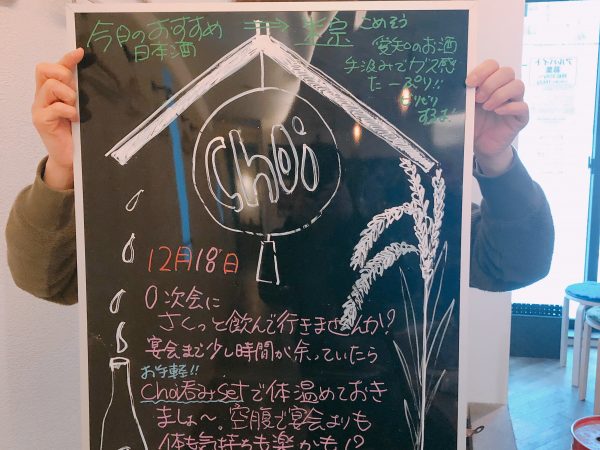 今日のおすすめ
日本酒
⇒ 米宗 こめそう
愛知のお酒
手汲みでガス感
たーっぷり!!
ぴりぴり
するよ!
Choi
12月18日
0次会に
さくっと飲んで行きませんか!?
宴会まで少し時間が余っていたら
お手軽!!
Choi呑みsetで体温めておき
ましょ〜。空腹で宴会よりも
体も気持ちも楽かも!?
アルバイト
募集